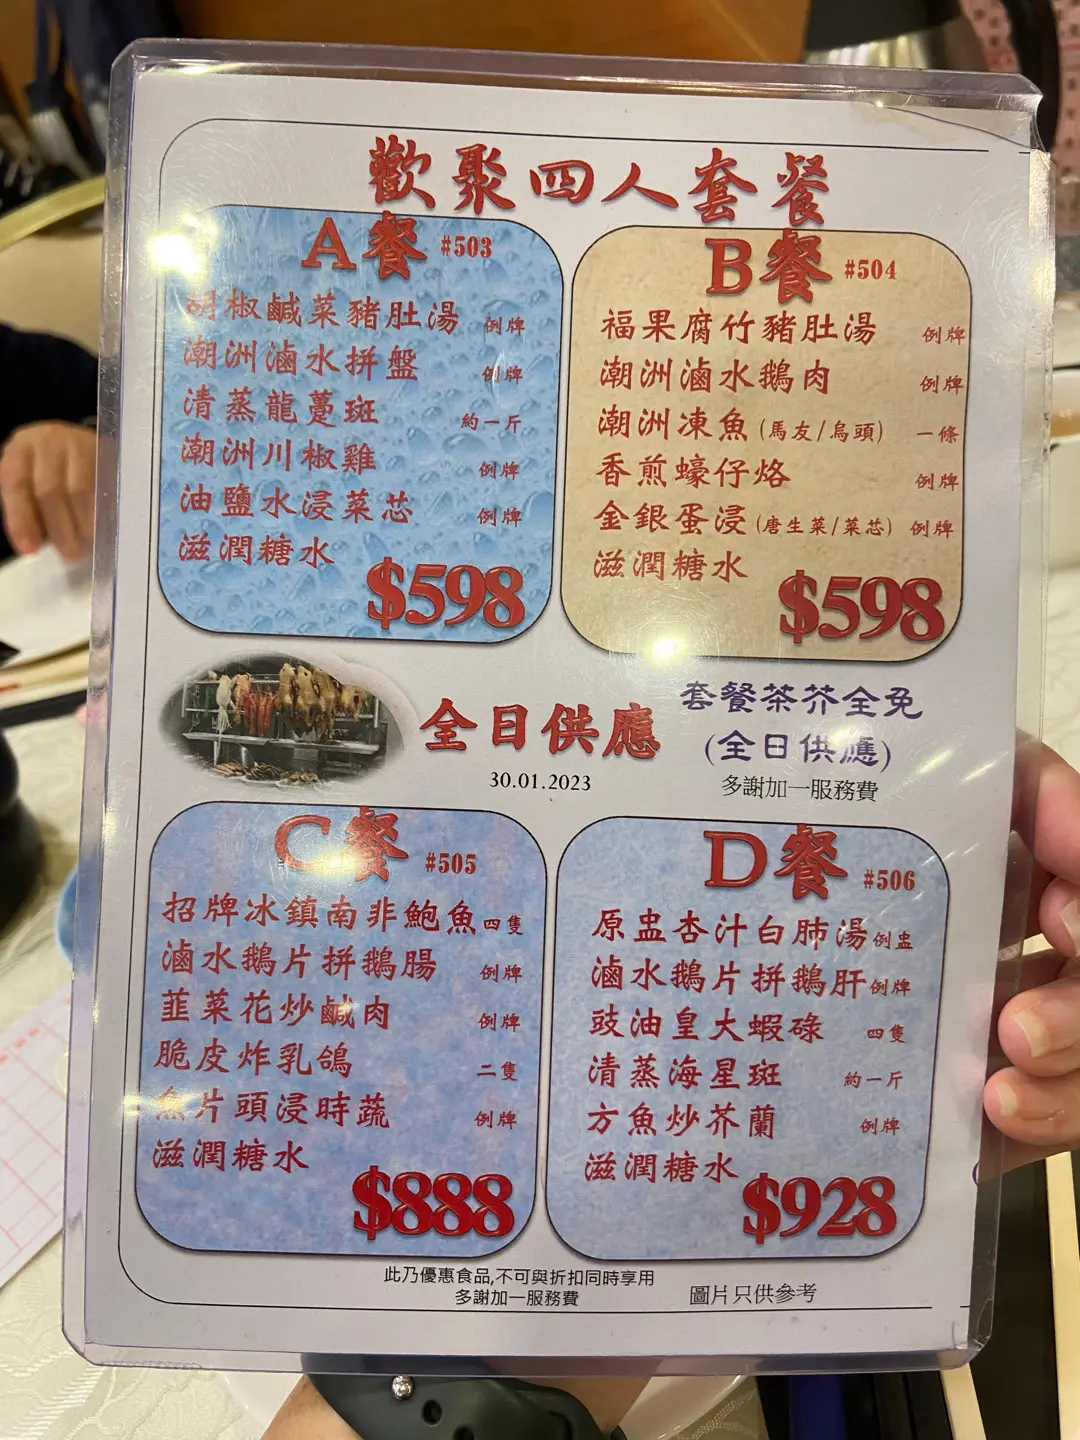 歡聚四人套餐
A餐 #503
胡椒鹹菜豬肚湯 例牌
潮洲滷水拼盤 例牌
清蒸龍躉斑 約一斤
潮洲川椒雞 例牌
油鹽水浸菜芯 例牌
滋潤糖水
$598
B餐 #504
福果腐竹豬肚湯 例牌
潮洲滷水鵝肉 例牌
潮洲凍魚(馬友/烏頭) 一條
香煎蠔仔烙 例牌
金銀蛋浸(唐生菜/菜芯) 例牌
滋潤糖水
$598
全日供應
30.01.2023
套餐茶芥全免
(全日供應)
多謝加一服務費
C餐 #505
招牌冰鎮南非鮑魚 四隻
滷水鵝片拼鵝腸 例牌
韮菜花炒鹹肉 例牌
脆皮炸乳鴿 二隻
魚片頭浸時蔬 例牌
滋潤糖水
$888
D餐 #506
原盅杏汁白肺湯 例盅
滷水鵝片拼鵝肝 例牌
豉油皇大蝦碌 四隻
清蒸海星斑 約一斤
方魚炒芥蘭 例牌
滋潤糖水
$928
此乃優惠食品,不可與折扣同時享用
多謝加一服務費
圖片只供參考